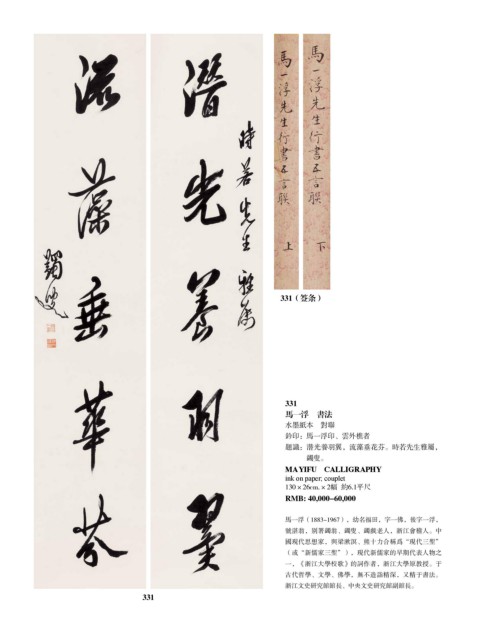 時若先生 雅屬
潛光養羽翼
流藻垂華芬
蠲叟
馬一浮先生行書五言联 上
馬一浮先生行書五言联 下
331（签条）
331
馬一浮 書法
水墨紙本 對聯
鈐印：馬一浮印、雲外樵者
題識：潛光養羽翼，流藻垂花芬。時若先生雅屬，
蠲叟。
MAYIFU CALLIGRAPHY
ink on paper; couplet
130×26cm.×2幅 約6.1平尺
RMB: 40,000-60,000
馬一浮（1883-1967），幼名福田，字一佛，後字一浮，
號湛翁，別署蠲翁、蠲叟、蠲戲老人，浙江會稽人。中
國現代思想家，與梁漱溟、熊十力合稱爲“現代三聖”
（或“新儒家三聖”），現代新儒家的早期代表人物之
一，《浙江大學校歌》的詞作者，浙江大學原教授。于
古代哲學、文學、佛學，無不造詣精深，又精于書法。
浙江文史研究館館長、中央文史研究館副館長。
331